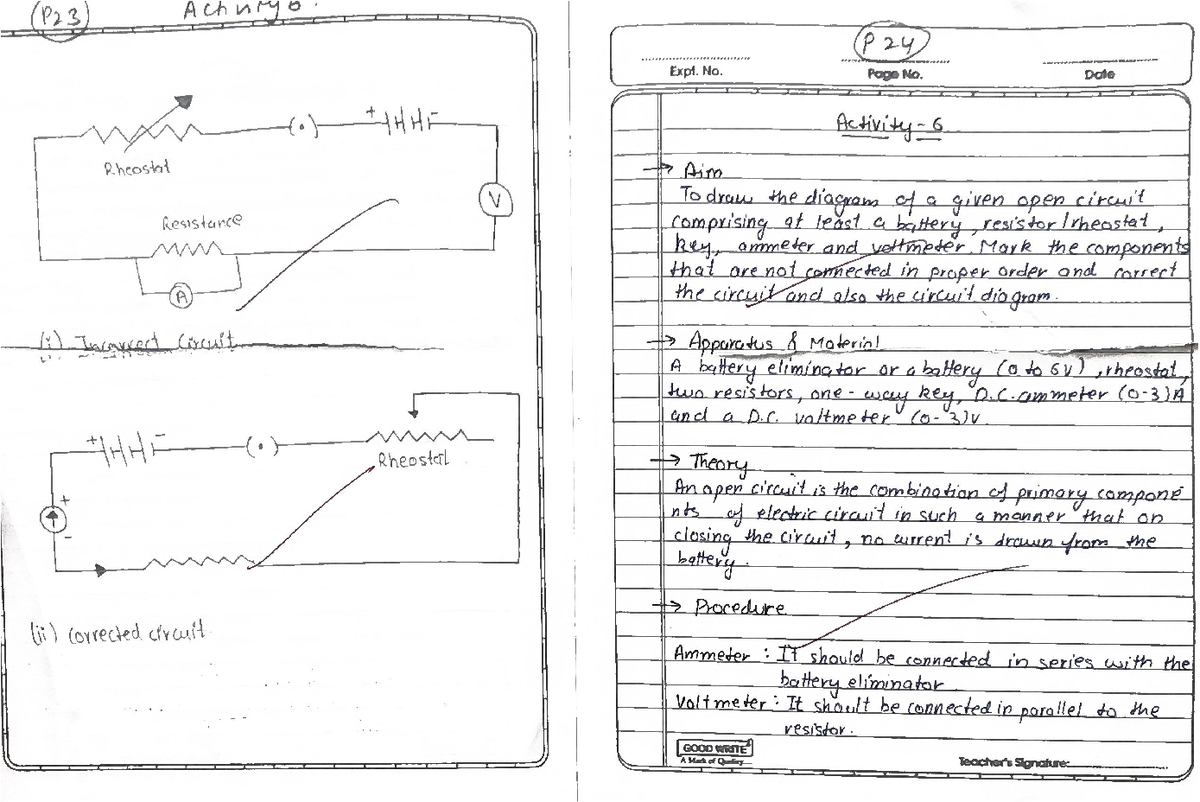 P23
Activity 6.
Rheostat
(•)
+
-
V
Resistance
A
(i) Incorrect Circuit
+
-
(•)
Rheostat
+
-
(ii) corrected circuit
P 24
Expt. No.
Page No.
Date
Activity - 6
→ Aim
To draw the diagram of a given open circuit
comprising at least a battery, resistor/rheostat,
key, ammeter and voltmeter. Mark the components
that are not connected in proper order and correct
the circuit and also the circuit diagram.
→ Apparatus & Material
A battery eliminator or a battery (0 to 6V), rheostat,
two resistors, one-way key, D.C. ammeter (0-3)A
and a D.C. voltmeter (0-3)V.
→ Theory
An open circuit is the combination of primary compone
nts of electric circuit in such a manner that on
closing the circuit, no current is drawn from the
battery.
→ Procedure
Ammeter : It should be connected in series with the
battery eliminator
Voltmeter : It should be connected in parallel to the
resistor.
GOOD WRITE
A Mark of Quality
Teacher's Signature: